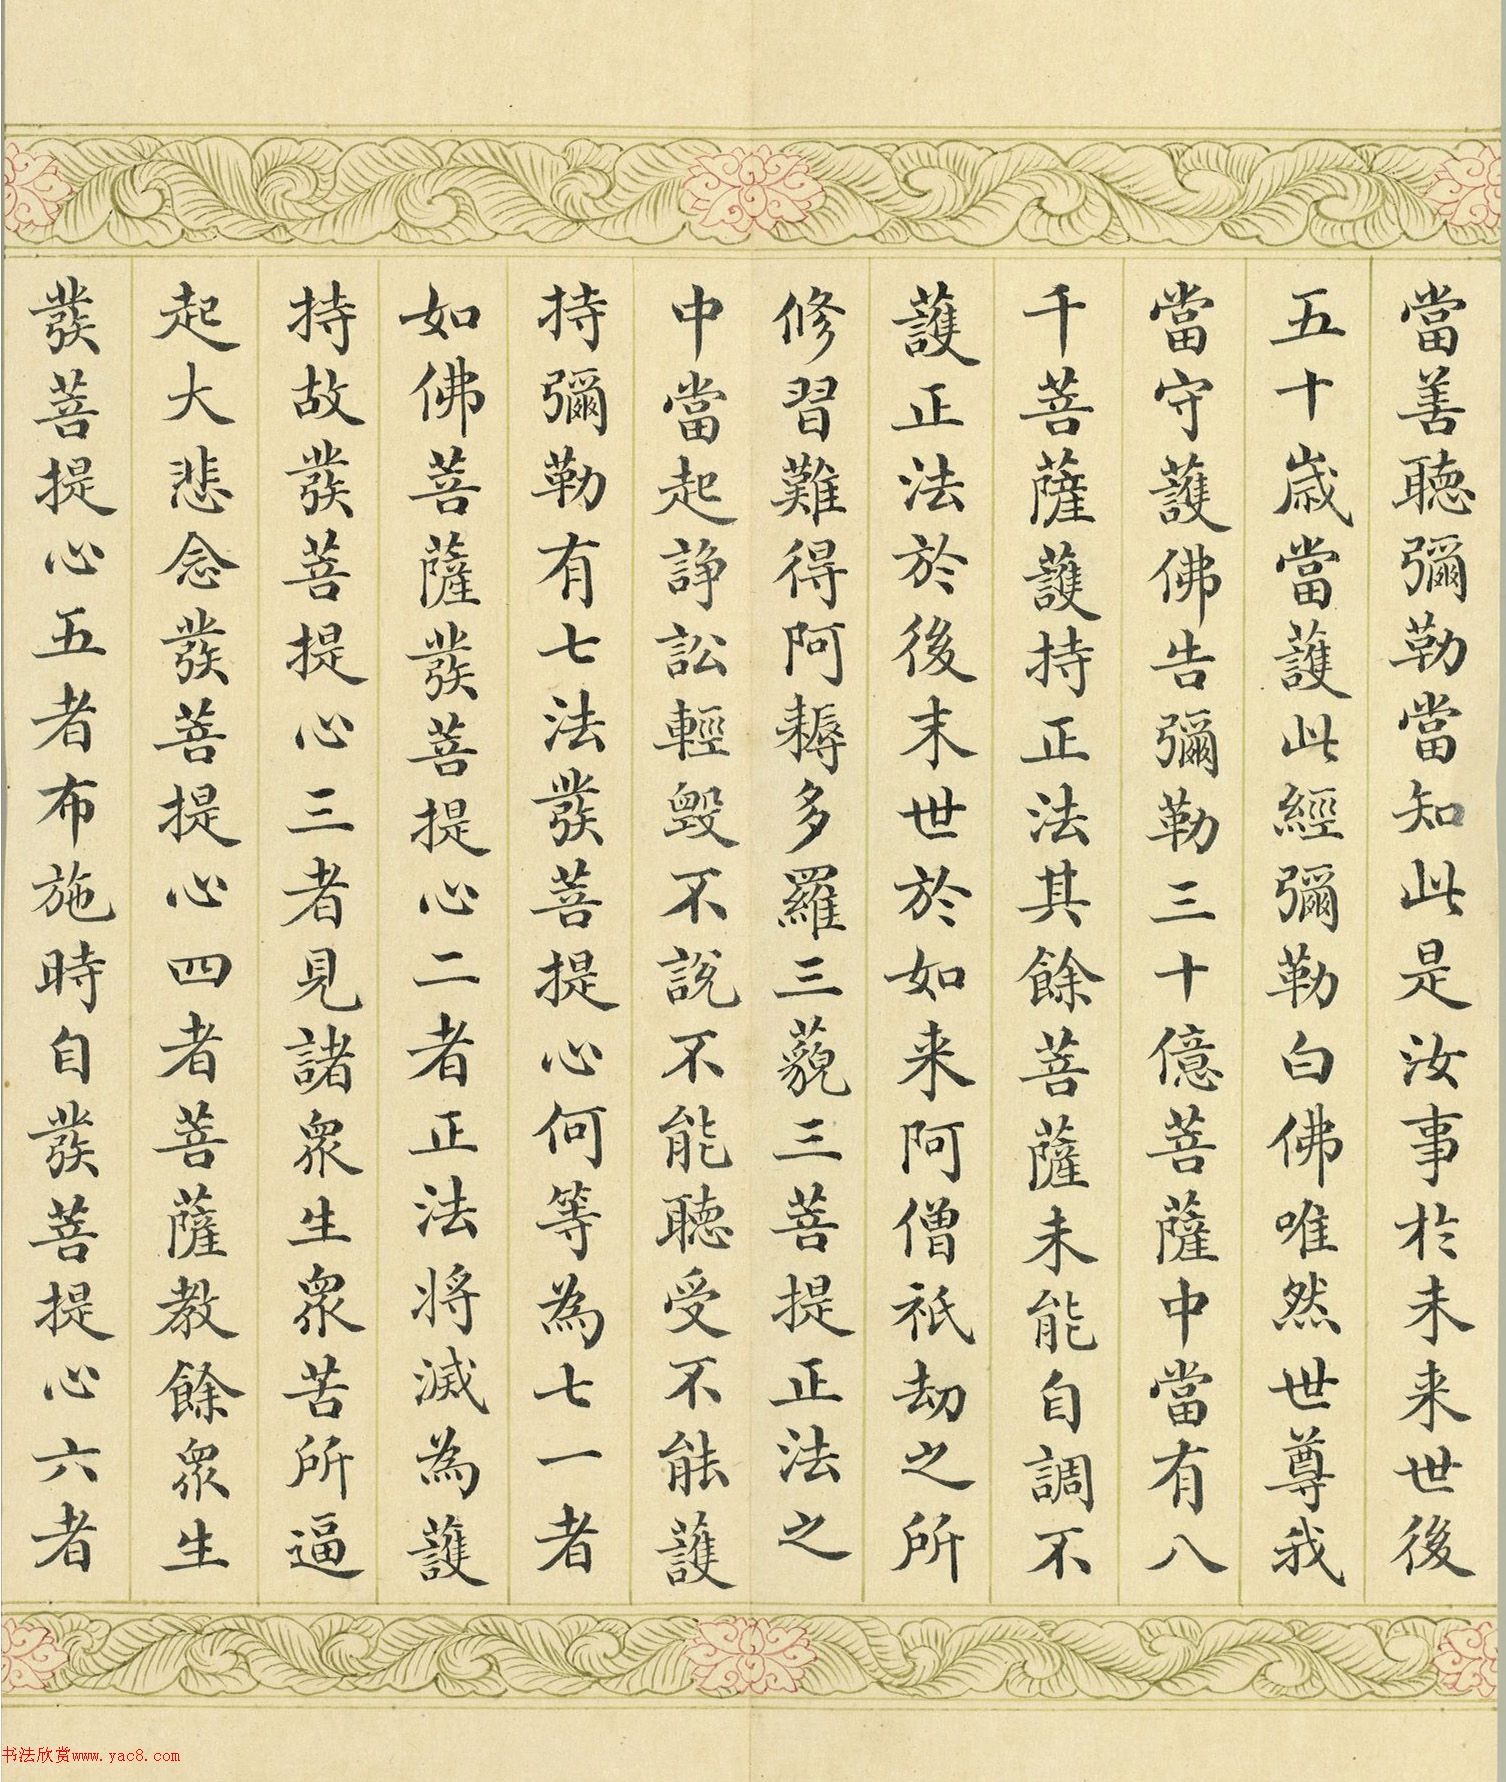 當善聽彌勒當知此是汝事於未来世後
五十歲當護此經彌勒白佛唯然世尊我
當守護佛告彌勒三十億菩薩中當有八
千菩薩護持正法其餘菩薩未能自調不
護正法於後末世於如来阿僧祇劫之所
修習難得阿耨多羅三藐三菩提正法之
中當起諍訟輕毀不說不能聽受不能護
持彌勒有七法發菩提心何等為七一者
如佛菩薩發菩提心二者正法將滅為護
持故發菩提心三者見諸衆生衆苦所逼
起大悲念發菩提心四者菩薩教餘衆生
發菩提心五者布施時自發菩提心六者
书法欣赏www.yac8.com